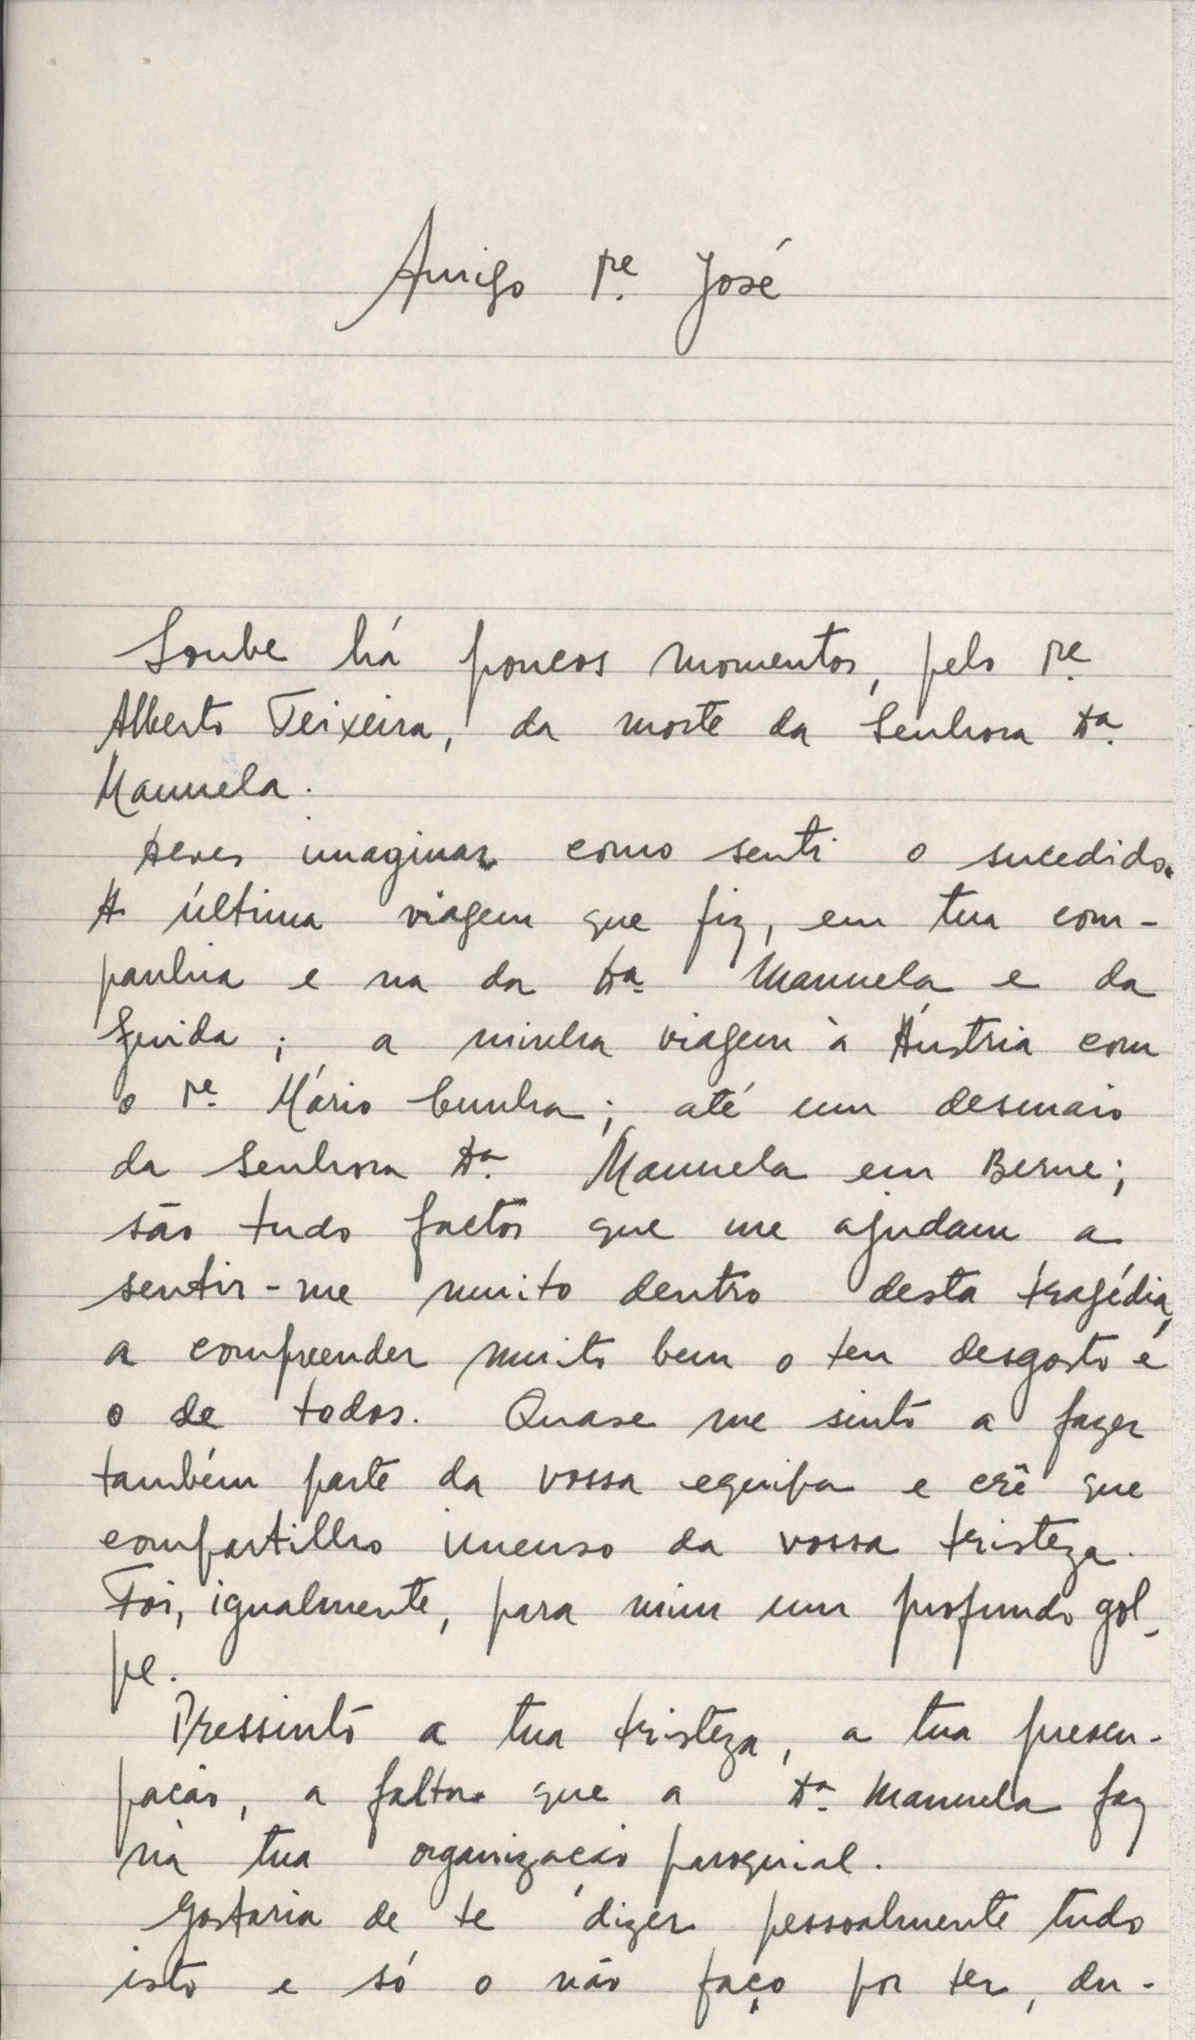 Amigo Pe. José
Soube há poucos momentos, pelo Pe.
Alberto Teixeira, da morte da Senhora Da.
Manuela.
Deves imaginar como senti o sucedido.
A última viagem que fiz, em tua com-
panhia e na da Da. Manuela e da
Guida; a minha viagem à Áustria com
o Pe. Mário Cunha; até um desmaio
da Senhora Da. Manuela em Berne;
são tudo factos que me ajudam a
sentir-me muito dentro desta tragédia,
a compreender muito bem o teu desgosto e
o de todos. Quase me sinto a fazer
também parte da vossa equipa e crê que
compartilho imenso da vossa tristeza.
Foi, igualmente, para mim um profundo gol-
pe.
Pressinto a tua tristeza, a tua preocu-
pação, a falta que a Da. Manuela faz
na tua organização paroquial.
Gostaria de te dizer pessoalmente tudo
isto e só o não faço por ter, du-